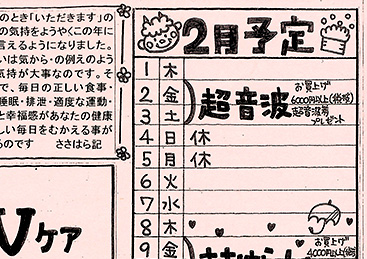 のとき「いただきます」の
の気持をようやくこの年に
言えるようになりました。
いは気から・の例えのよう
気持が大事なのです。そ
で、毎日の正しい食事・
睡眠・排泄・適度な運動・
と幸福感があなたの健康
しい毎日をむかえる事が
るのです ささはら記
Vケア
2月予定
1 木
2 金
3 土
超音波
お買上げ
6000円以上(税抜)
超音波券
プレゼント
4 日 休
5 月 休
6 火
7 水
8 木
9 金
お買上げ
4000円以上(税抜)